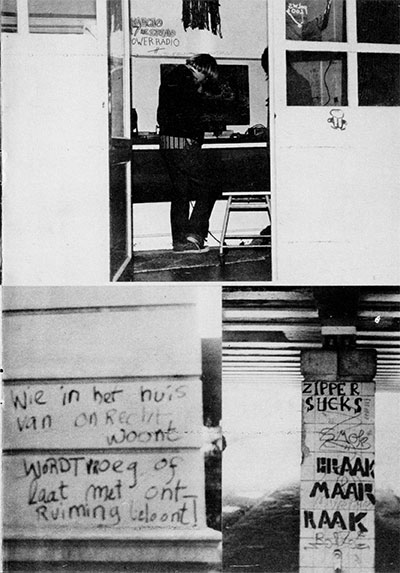 OWER RADIO
Wie in het huis
van onRecht
woont
WORDT vroeg of
laat met ont-
Ruiming beloont!
ZIPPER
SUCKS
KRAAK
MAAR
RAAK